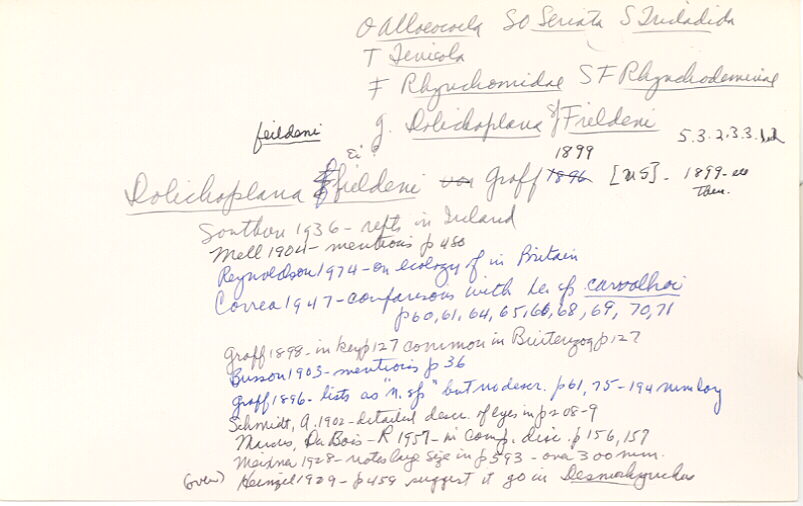 O Alloeocoela SO Seriata S Tricladida
T Terricola
F Rhynchomidae SF Rhynchodeminae
feildeni g. Dolichoplana sp Fieldeni 5.3.2.3.3.
ei ? 1899
Dolichoplana fieldeni von Graff 1896 [NS]. 1899 - see
Then.
Southern 1936 - repts in Ireland
Mell 1904 - mentions p 480
Reynoldson 1974 - on ecology of in Britain
Correa 1947 - comparisons with her sp carvalhoi
p 60, 61, 64, 65, 66, 68, 69, 70, 71
Graff 1898 - in key p 127 common in Buitenzog p 127
Busson 1903 - mentions p 36
Graff 1896 - lists as "n. sp" but no descr. p 61, 75 - 194 mm long
Schmidt, A. 1902 - detailed descr. of eyes in p 208-9
Marcus, Du Bois-R 1957 - in comp. disc. p 156, 157
Meixner 1928 - notes large size in p 593 - over 300 mm.
(over) Heinzel 1929 - p 459 suggest it go in Desmorhynchus